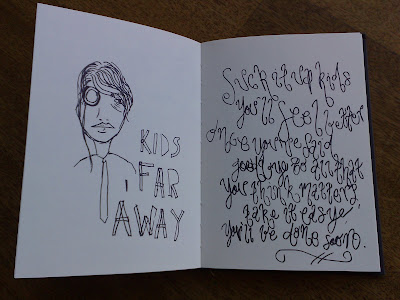 KIDS
FAR
AWAY
Suck it up kids
You'll feel better
once you've said
goodbye to all that
you think matters,
take it easye,
you'll be done soon.